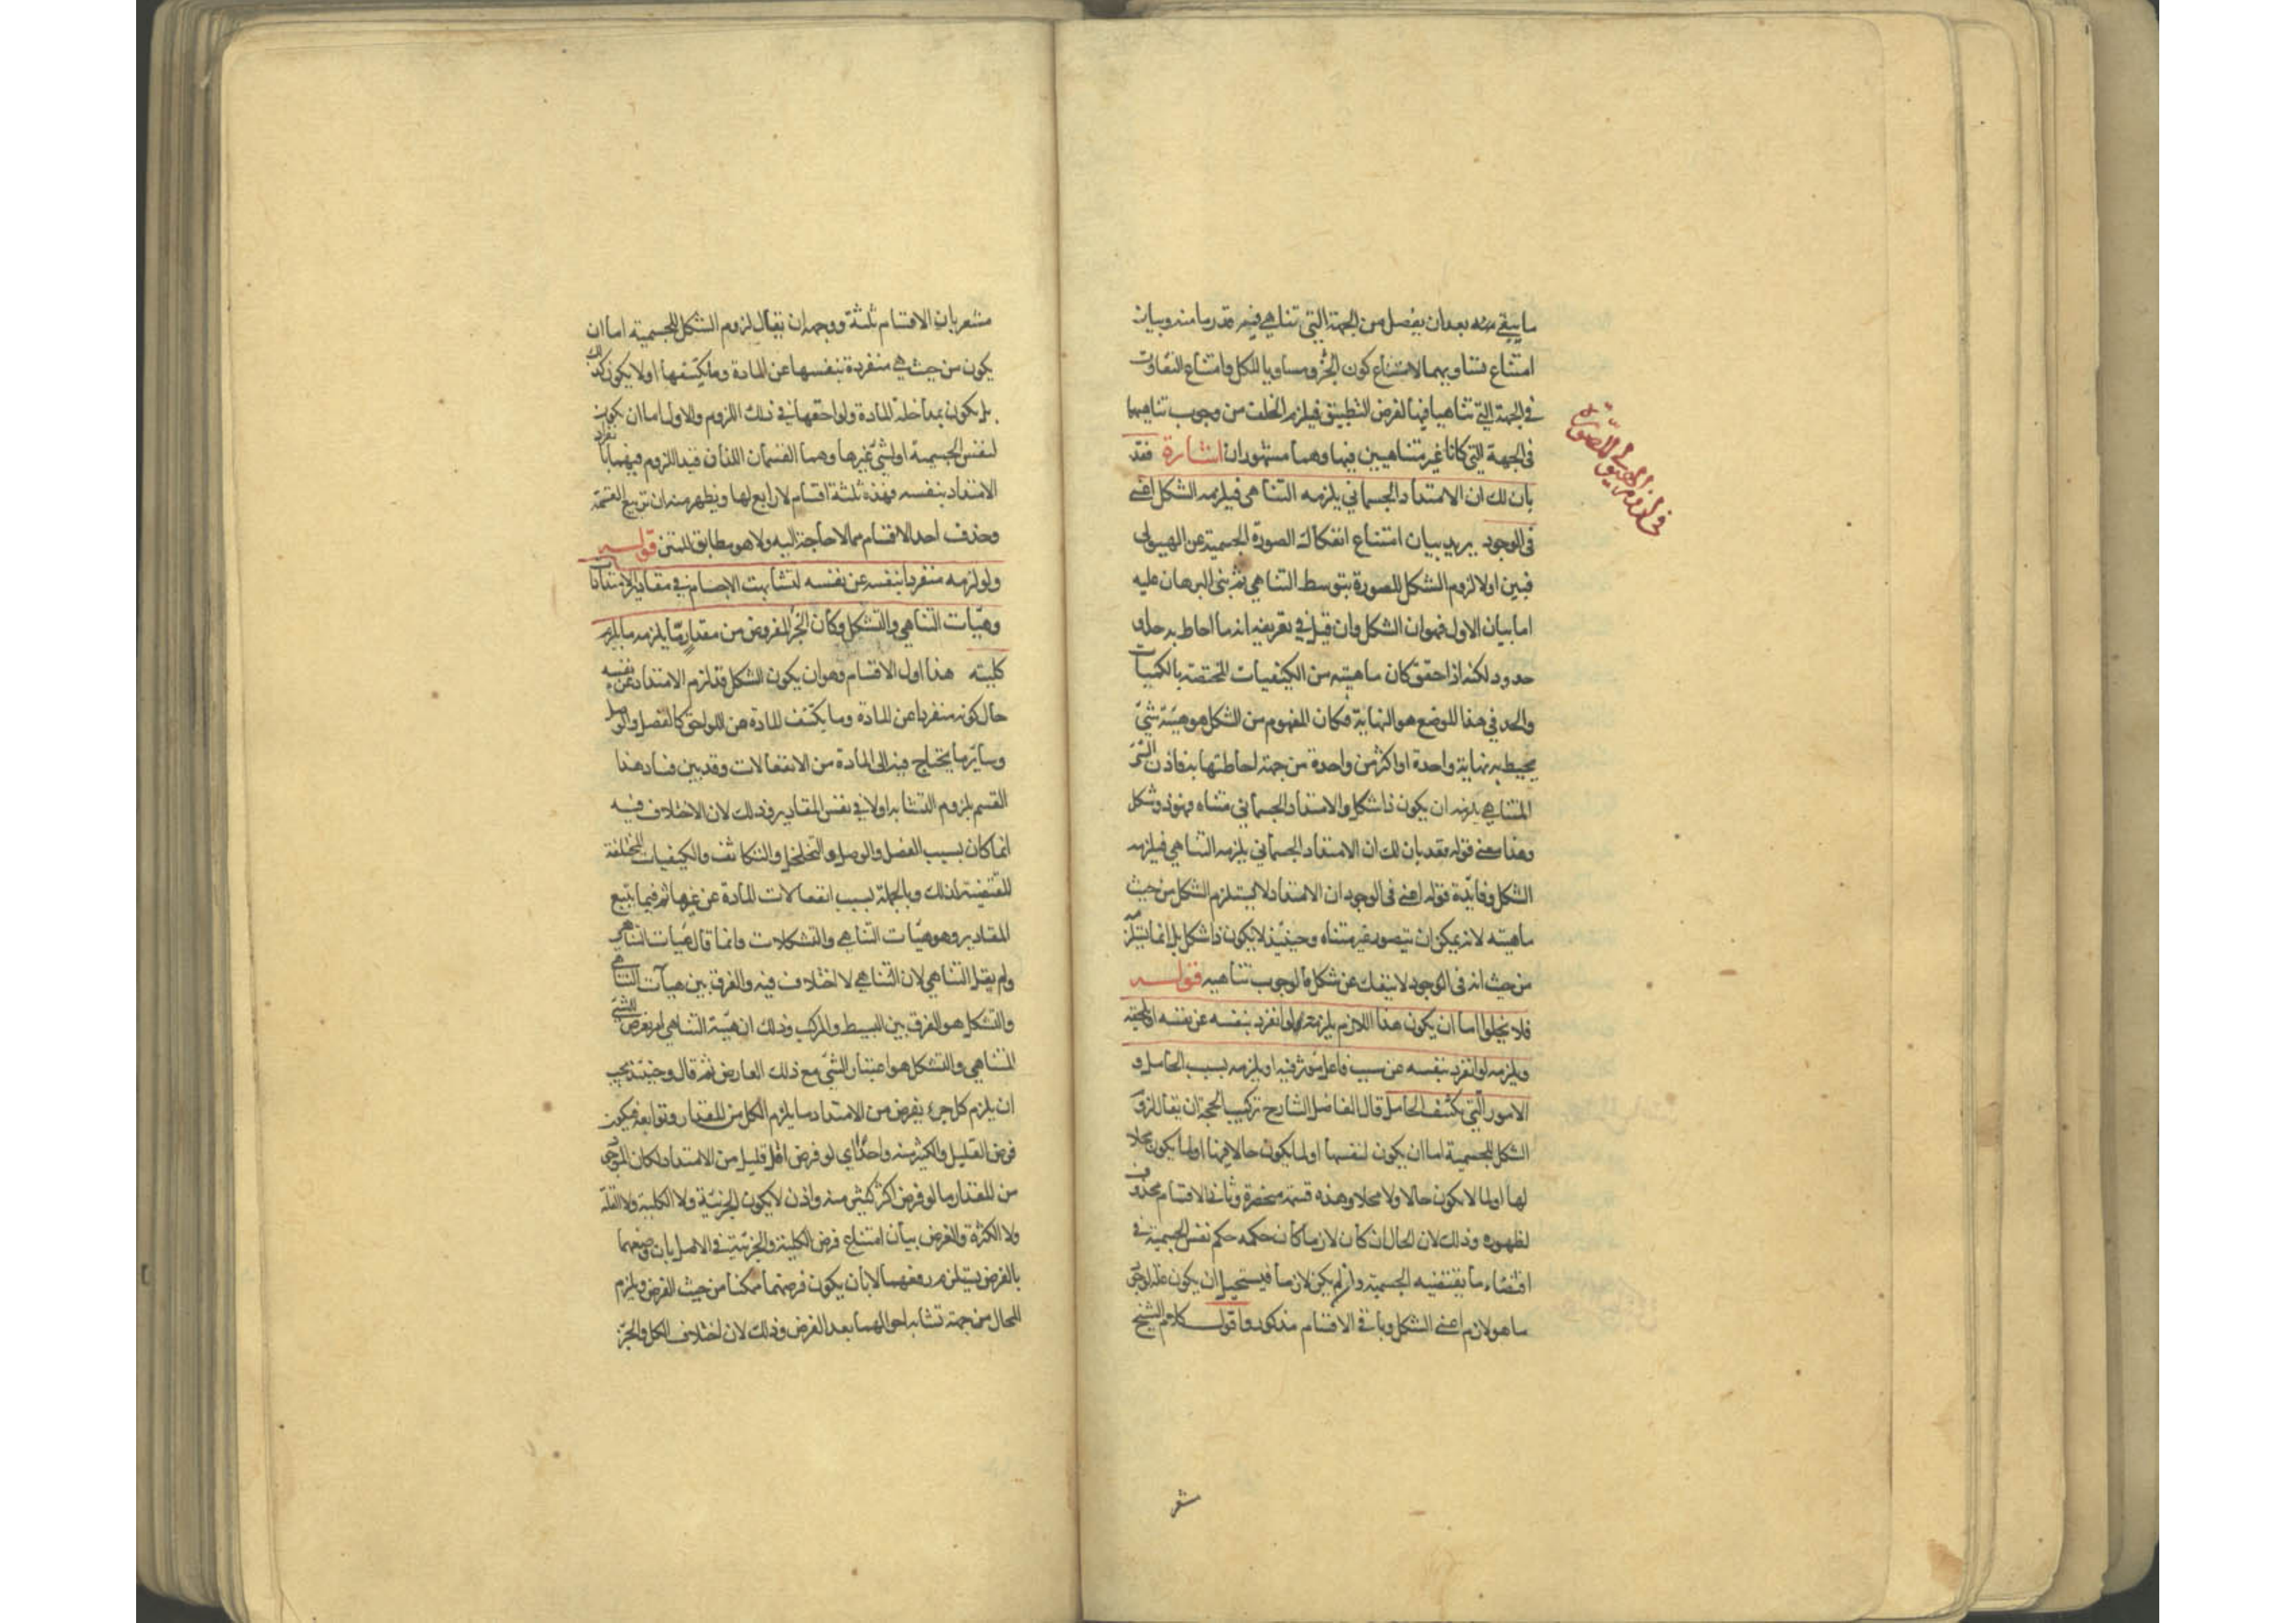 ما يبقى منه بعد ان يفصل من الجهة التي تناهى فيه قدر ما منه وبيان
امتناع تساويهما لامتناع كون الجزء مساويا للكل وامتناع التفاوت
فى الجهة التى تناهيا فيها لفرض التطبيق فيلزم الخلف من وجوب تناهيهما
فى الجهة التى كانا غير متناهيين فيها وهما مشهوران اشارة فقد
بان لك ان الامتداد الجسمانى يلزمه التناهى فيلزمه الشكل اعنى
فى الوجود يريد بيان امتناع انفكاك الصورة الجسمية عن الهيولى
فبين اولا لزوم الشكل للصورة بتوسط التناهى ثم بنى البرهان عليه
اما بيان الاول فهو ان الشكل وان قيل فى تعريفه انه ما احاط به حد او
حدود لكنه اذا حقق كان ماهيته من الكيفيات المختصة بالكميات
والحد فى هذا الموضع هو النهاية فكان المفهوم من الشكل هو هيئة شئ
يحيط به نهاية واحدة او اكثر من واحدة من جهة احاطتها به فاذن الشئ
المتناهى يلزمه ان يكون ذا شكل والامتداد الجسمانى متناه فهو ذو شكل
وهذا معنى قوله فقد بان لك ان الامتداد الجسمانى يلزمه التناهى فيلزمه
الشكل وفائدة قوله اعنى فى الوجود ان الامتداد لا يستلزم الشكل من حيث
ماهيته لانه يمكن ان يتصور غير متناه وحينئذ لا يكون ذا شكل بل انما يستلزمه
من حيث انه فى الوجود لا ينفك عن شكل ما لوجوب تناهيه قوله
فلا يخلوا اما ان يكون هذا اللازم يلزمه لو انفرد بنفسه عن نفسه او لحقه
ويلزمه لو انفرد بنفسه عن سبب فاعل مؤثر فيه او يلزمه بسبب الحامل و
الامور التى تكتنف الحامل قال الفاضل الشارح تركيب الحجة ان يقال لزوم
الشكل للجسمية اما ان يكون لنفسها او لما يكون حالا فيها او لما يكون محلا
لها او لما لا يكون حالا ولا محلا وهذه قسمة منحصرة وثانى الاقسام محذوف
لظهوره وذلك لان الحال ان كان لازما كان حكمه حكم نفس الجسمية فى
اقتضاء ما يقتضيه الجسمية وان لم يكن لازما فيستحيل ان يكون علة لوجود
ما هو لازم اعنى الشكل وباقى الاقسام مذكور واقول كلام الشيخ
مشعر
فى لزوم الهيولى للصورة
مشعر بان الاقسام ثلثة ووجهه ان يقال لزوم الشكل للجسمية اما ان
يكون من حيث هى منفردة بنفسها عن المادة وما يكتنفها او لا يكون كذلك
بل يكون بمداخلة المادة ولواحقها فى ذلك اللزوم والاول اما ان يكون
لنفس الجسمية او لشئ غيرها وهما القسمان اللذان قيد اللزوم فيهما بانفراد
الامتداد بنفسه فهذه ثلثة اقسام لا رابع لها ويظهر منه ان تربيع القسمة
وحذف احد الاقسام مما لا حاجة اليه ولا هو مطابق للمتن قوله
ولو لزمه منفردا بنفسه عن نفسه لتشابهت الاجسام فى مقادير الامتدادات
وهيآت التناهى والتشكل وكان الجزء المفروض من مقدار ما يلزمه ما يلزم
كليته هذا اول الاقسام وهو ان يكون الشكل قد لزم الامتداد عن نفسه
حال كونه منفردا عن المادة وما يكتنف المادة من اللواحق كالفصل والوصل
وسائر ما يحتاج فيه الى المادة من الانفعالات وقد بين فساد هذا
القسم بلزوم التشابه اولا فى نفس المقادير وذلك لان الاختلاف فيه
انما كان بسبب الفصل والوصل والتخلخل والتكاثف والكيفيات المختلفة
المقتضية لذلك وبالجملة بسبب انفعالات المادة عن غيرها ثم فيما يتبع
المقادير وهو هيآت التناهى والتشكلات وانما قال هيآت التناهى
ولم يقل التناهى لان التناهى لا اختلاف فيه والفرق بين هيآت التناهى
والتشكل هو الفرق بين البسيط والمركب وذلك ان هيئة التناهى امر يعرض للشئ
المتناهى والتشكل هو اعتبار الشئ مع ذلك العارض ثم قال وحينئذ يجب
ان يلزم كل جزء يفرض من الامتداد ما يلزم الكل من المقدار وتوابعه فيكون
فرض القليل والكثير منه واحدا اى لو فرض اقل قليل من الامتداد لكان الموجود
من المقدار ما لو فرض اكثر كثير منه واذن لا يكون الجزئية ولا الكلية ولا القلة
ولا الكثرة والغرض بيان امتناع فرض الكلية والجزئية فى الاصل بان وضعهما
بالفرض يستلزم رفعهما لا بان يكون فرضهما ممكنا من حيث الفرض ويلزم
المحال من جهة تشابه احوالهما بعد الفرض وذلك لان اختلاف الكل والجزء